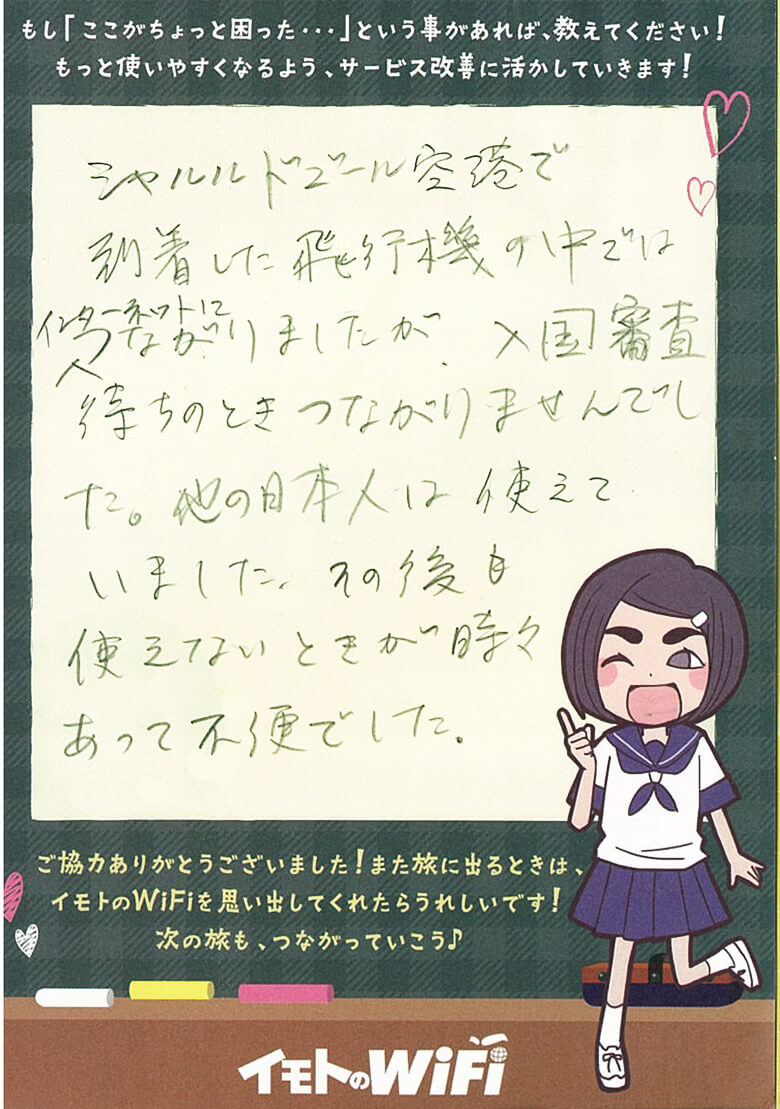 もし「ここがちょっと困った・・・」という事があれば、教えてください!
もっと使いやすくなるよう、サービス改善に活かしていきます!
シャルルドゴール空港で
到着した飛行機の中では
インターネットに
つながりましたが、入国審査
待ちのときつながりませんでし
た。他の日本人は使えて
いました。その後も
使えないときが時々
あって不便でした。
ご協力ありがとうございました!また旅に出るときは、
イモトのWiFiを思い出してくれたらうれしいです!
次の旅も、つながっていこう♪
イモトのWiFi